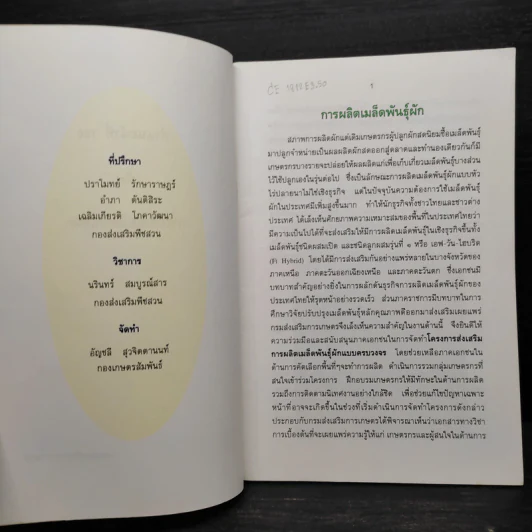 ที่ปรึกษา
ปราโมทย์ รักษาราษฎร์
อำภา ตันติสิระ
เฉลิมเกียรติ โภคาวัฒนา
กองส่งเสริมพืชสวน
วิชาการ
นรินทร์ สมบูรณ์สาร
กองส่งเสริมพืชสวน
จัดทำ
อัญชลี สุวจิตตานนท์
กองเกษตรสัมพันธ์
1
การผลิตเมล็ดพันธุ์ผัก
สภาพการผลิตผักแต่เดิมเกษตรกรผู้ปลูกผักสดนิยมซื้อเมล็ดพันธุ์
มาปลูกจำหน่ายเป็นผลผลิตผักสดออกสู่ตลาดและทำนองเดียวกันก็มี
เกษตรกรบางรายจะปล่อยให้ผลผลิตแก่เพื่อเก็บเกี่ยวเมล็ดพันธุ์บางส่วน
ไว้ใช้ปลูกเองในรุ่นต่อไป ซึ่งเป็นลักษณะการผลิตเมล็ดพันธุ์ผักแบบหัว
ไร่ปลายนาไม่ใช่เชิงธุรกิจ แต่ในปัจจุบันความต้องการใช้เมล็ดพันธุ์
ผักในประเทศมีเพิ่มสูงขึ้นมาก ทำให้นักธุรกิจทั้งชาวไทยและชาวต่าง
ประเทศ ได้เล็งเห็นศักยภาพความเหมาะสมของพื้นที่ในประเทศไทยว่า
มีความเป็นไปได้ที่จะส่งเสริมให้มีการผลิตเมล็ดพันธุ์ผักในเชิงธุรกิจขึ้นทั้ง
เมล็ดพันธุ์ชนิดผสมเปิด และชนิดลูกผสมรุ่นที่ ๑ หรือ เอฟ-วัน-ไฮบริด
(F1 Hybrid) โดยได้มีการส่งเสริมกันอย่างแพร่หลายในบางจังหวัดของ
ภาคเหนือ ภาคตะวันออกเฉียงเหนือ และภาคตะวันตก ซึ่งเอกชนมี
บทบาทสำคัญอย่างยิ่งในการผลักดันธุรกิจการผลิตเมล็ดพันธุ์ผักของ
ประเทศไทยให้รุดหน้าอย่างรวดเร็ว ส่วนภาคราชการมีบทบาทในการ
ศึกษาวิจัยปรับปรุงเมล็ดพันธุ์หลักคุณภาพดีออกมาส่งเสริมเผยแพร่
กรมส่งเสริมการเกษตรจึงเล็งเห็นความสำคัญในงานด้านนี้ จึงยินดีให้
ความร่วมมือและสนับสนุนภาคเอกชนในการจัดทำโครงการส่งเสริม
การผลิตเมล็ดพันธุ์ผักแบบครบวงจร โดยช่วยเหลือภาคเอกชนใน
ด้านการคัดเลือกพื้นที่ๆจะทำการผลิต ดำเนินการรวมกลุ่มเกษตรกรที่
สนใจเข้าร่วมโครงการ ฝึกอบรมเกษตรกรให้มีทักษะในด้านการผลิต
รวมถึงการติดตามนิเทศงานอย่างใกล้ชิด เพื่อช่วยแก้ไขปัญหาเฉพาะ
หน้าที่อาจจะเกิดขึ้นในช่วงที่เริ่มดำเนินการจัดทำโครงการดังกล่าว
ประกอบกับกรมส่งเสริมการเกษตรได้พิจารณาเห็นว่าเอกสารทางวิชา
การเบื้องต้นที่จะเผยแพร่ความรู้ให้แก่ เกษตรกรและผู้สนใจในด้านการ